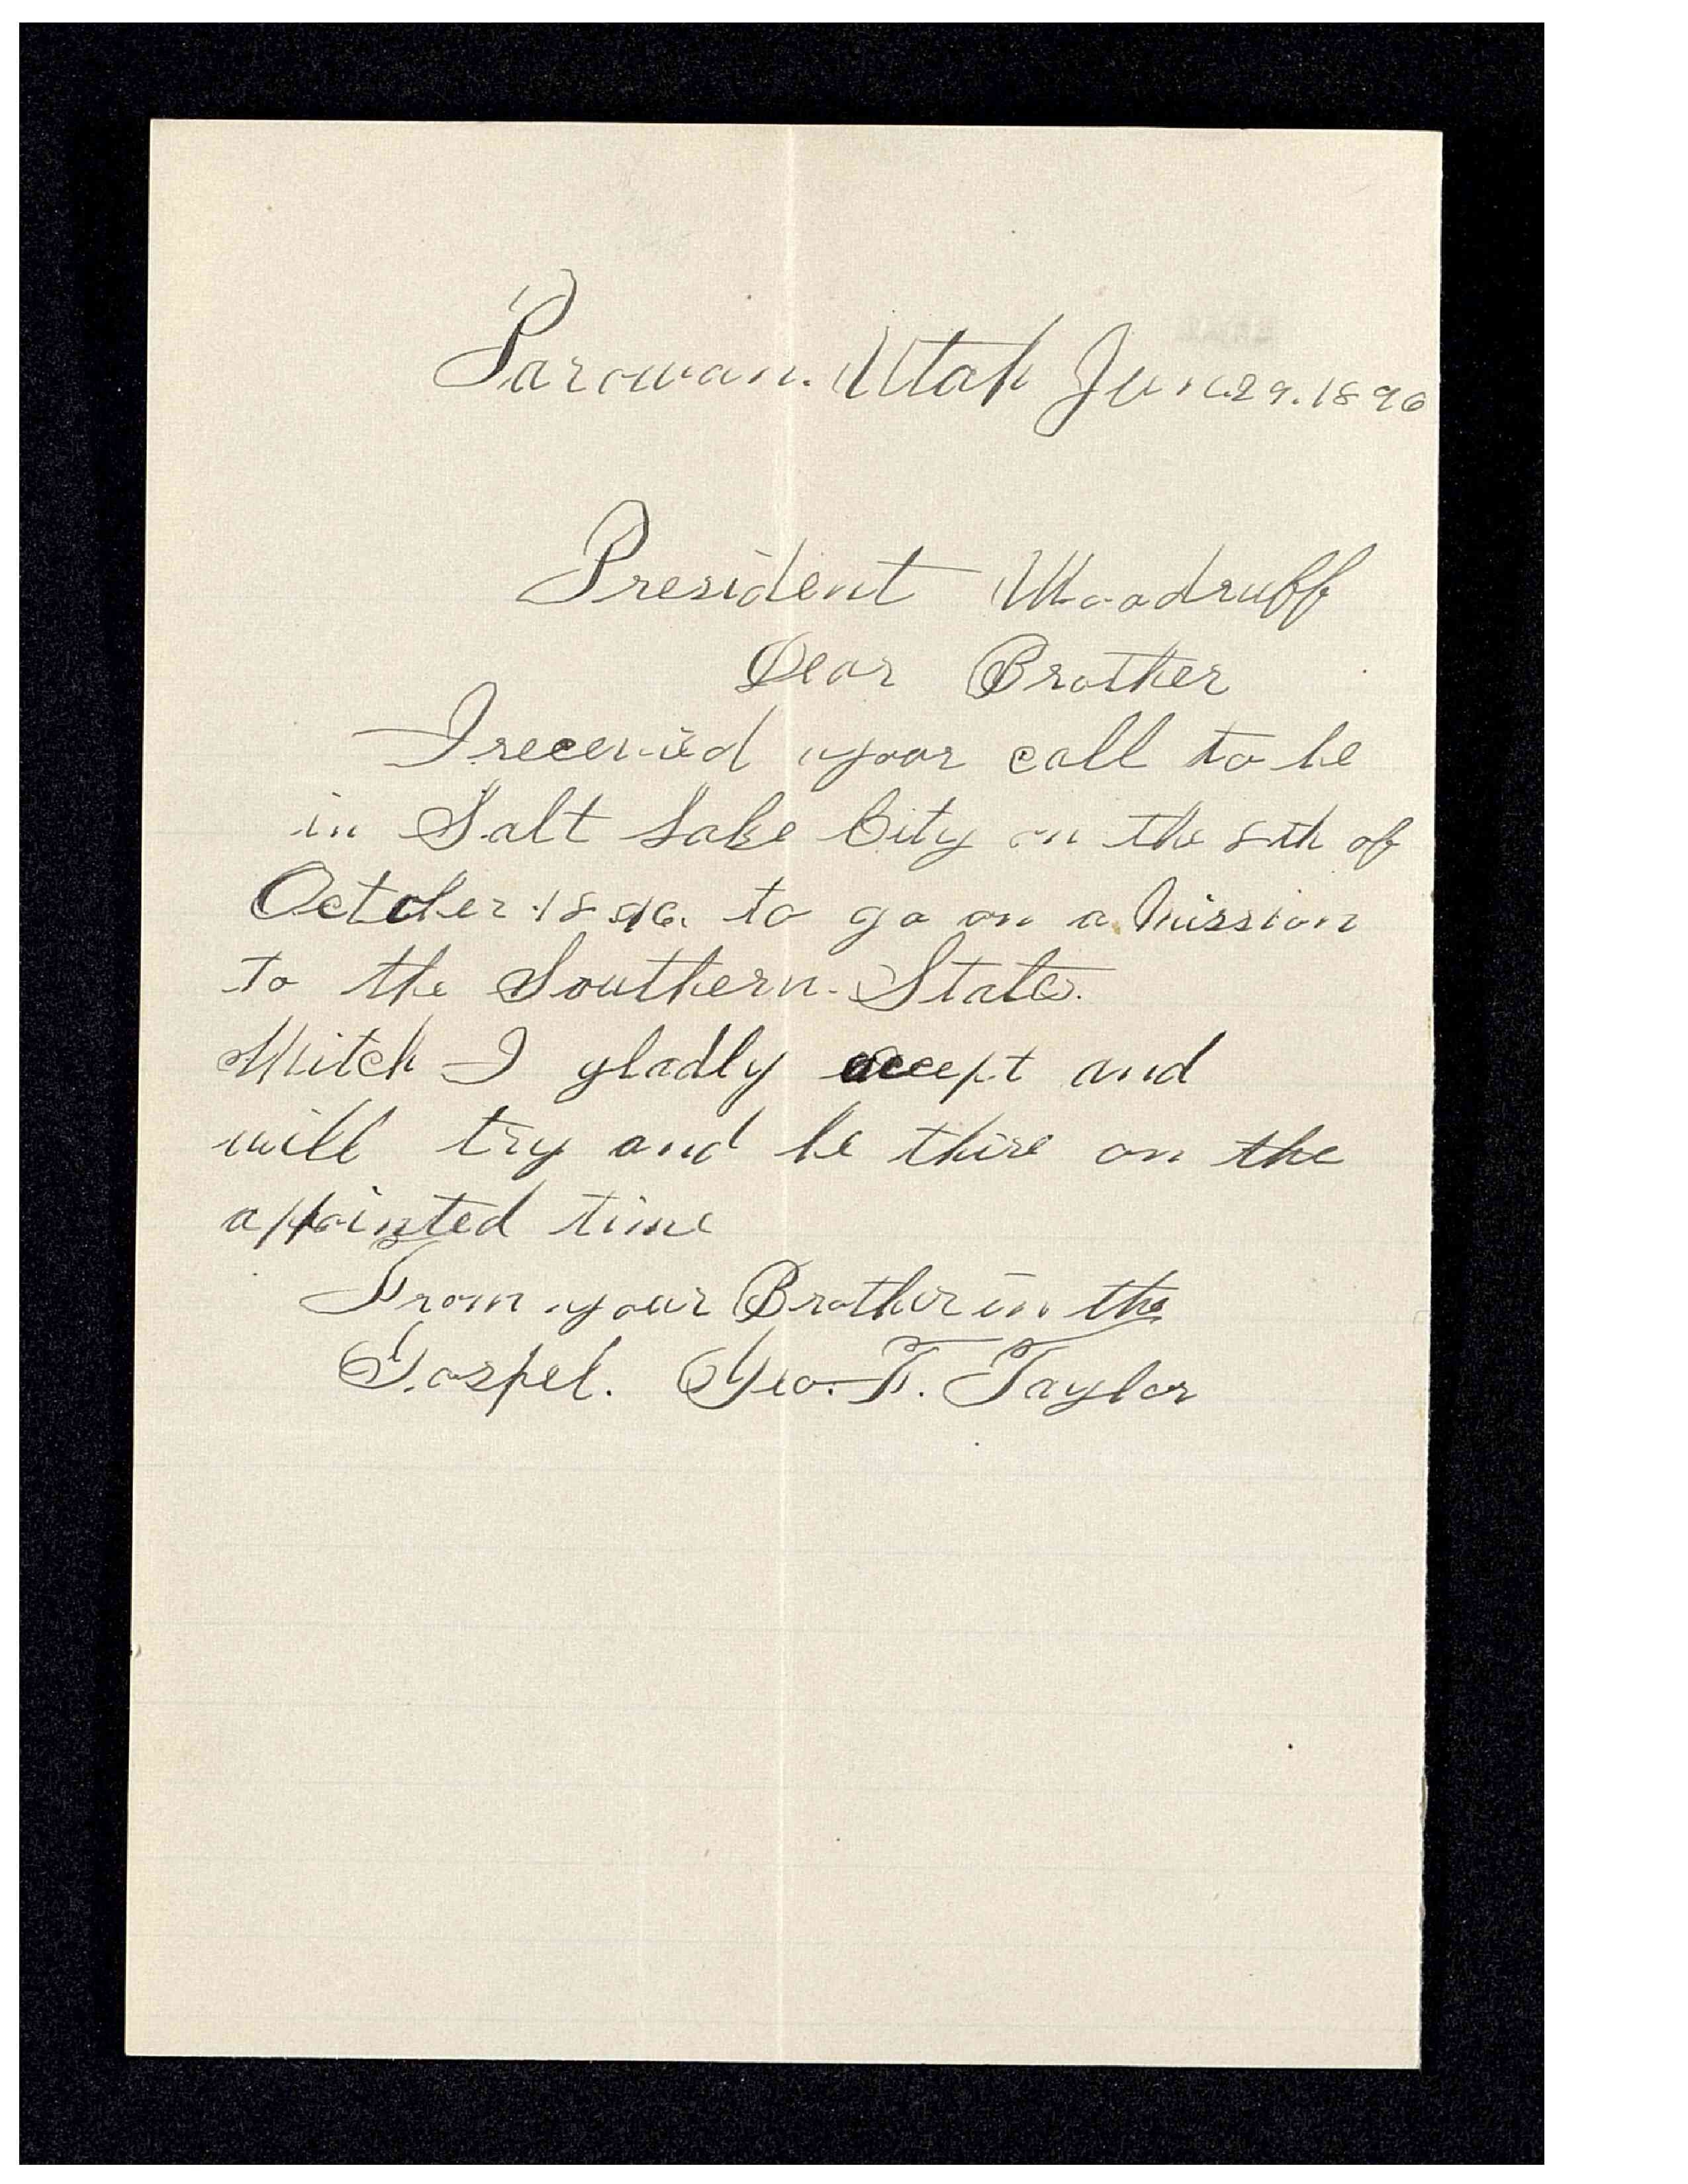 Parowan. Utah June 29. 1896
President Woodruff
Dear Brother
I recevied your call to be
in Salt Lake City on the 8th of
October 1896. to go on a Mission
to the Southern States.
Witch I gladly accept and
will try and be thire on the
appointed time
From your Brother in the
Gospel. Geo. T. Taylor